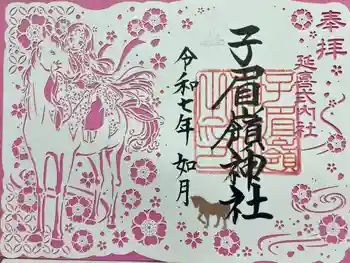 奉拝
延喜式内社
子眉嶺神社
令和七年 如月